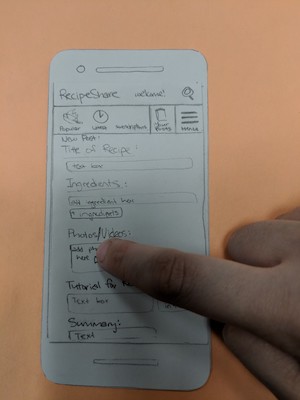 RecipeShare welcome!
Popular Latest Subscriptions Your Posts Menu
New Post:
Title of Recipe:
Text box
Ingredients:
ingredient box
+ ingredients
Photos/Videos:
here
Tutorial for
Text box
Summary:
Text